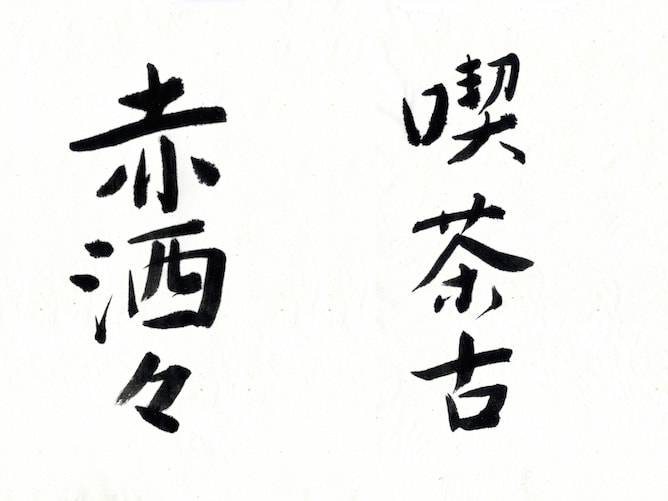 喫茶古
赤洒々